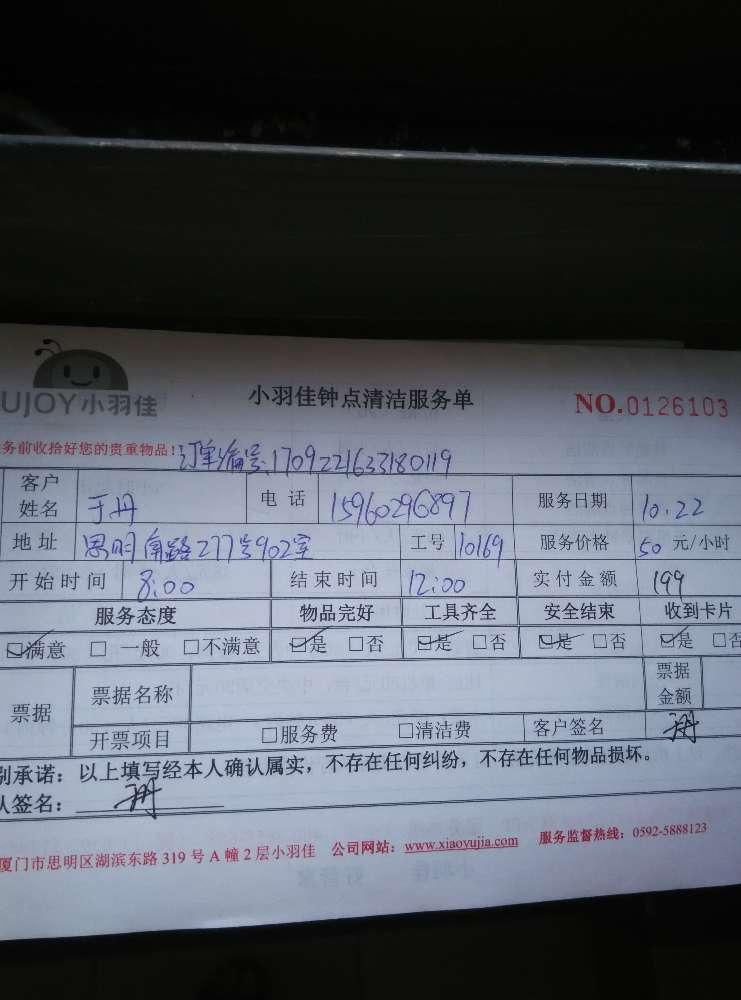 UJOY小羽佳 小羽佳钟点清洁服务单 NO.0126103
务前收拾好您的贵重物品! 订单编号:1709221633180119
客户姓名 于丹 电话 15960296897 服务日期 10.22
地址 思明南路277号902室 工号 10169 服务价格 50 元/小时
开始时间 8:00 结束时间 12:00 实付金额 199
服务态度 物品完好 工具齐全 安全结束 收到卡片
☑满意 □ 一般 □不满意 ☑是 □否 ☑是 □否 ☑是 □否 ☑是 □否
票据 票据名称 票据金额
开票项目 □服务费 □清洁费 客户签名 于丹
别承诺：以上填写经本人确认属实，不存在任何纠纷，不存在任何物品损坏。
人签名： 于丹
厦门市思明区湖滨东路 319 号 A 幢 2 层小羽佳 公司网站：www.xiaoyujia.com 服务监督热线：0592-5888123